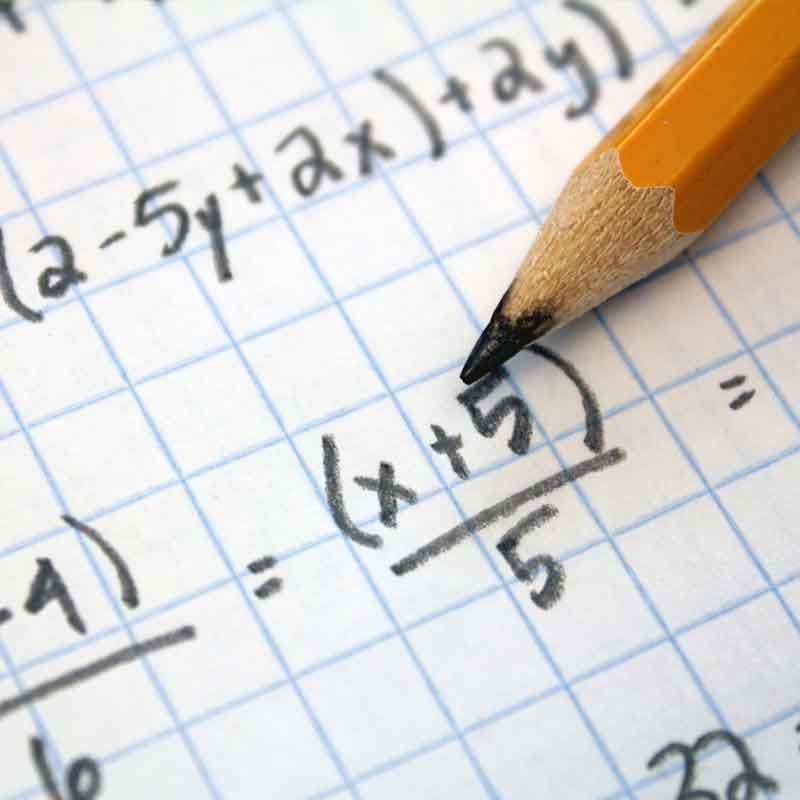 (2-5y+2x)+2y)
-4)/6 = (x+5)/5 =
32